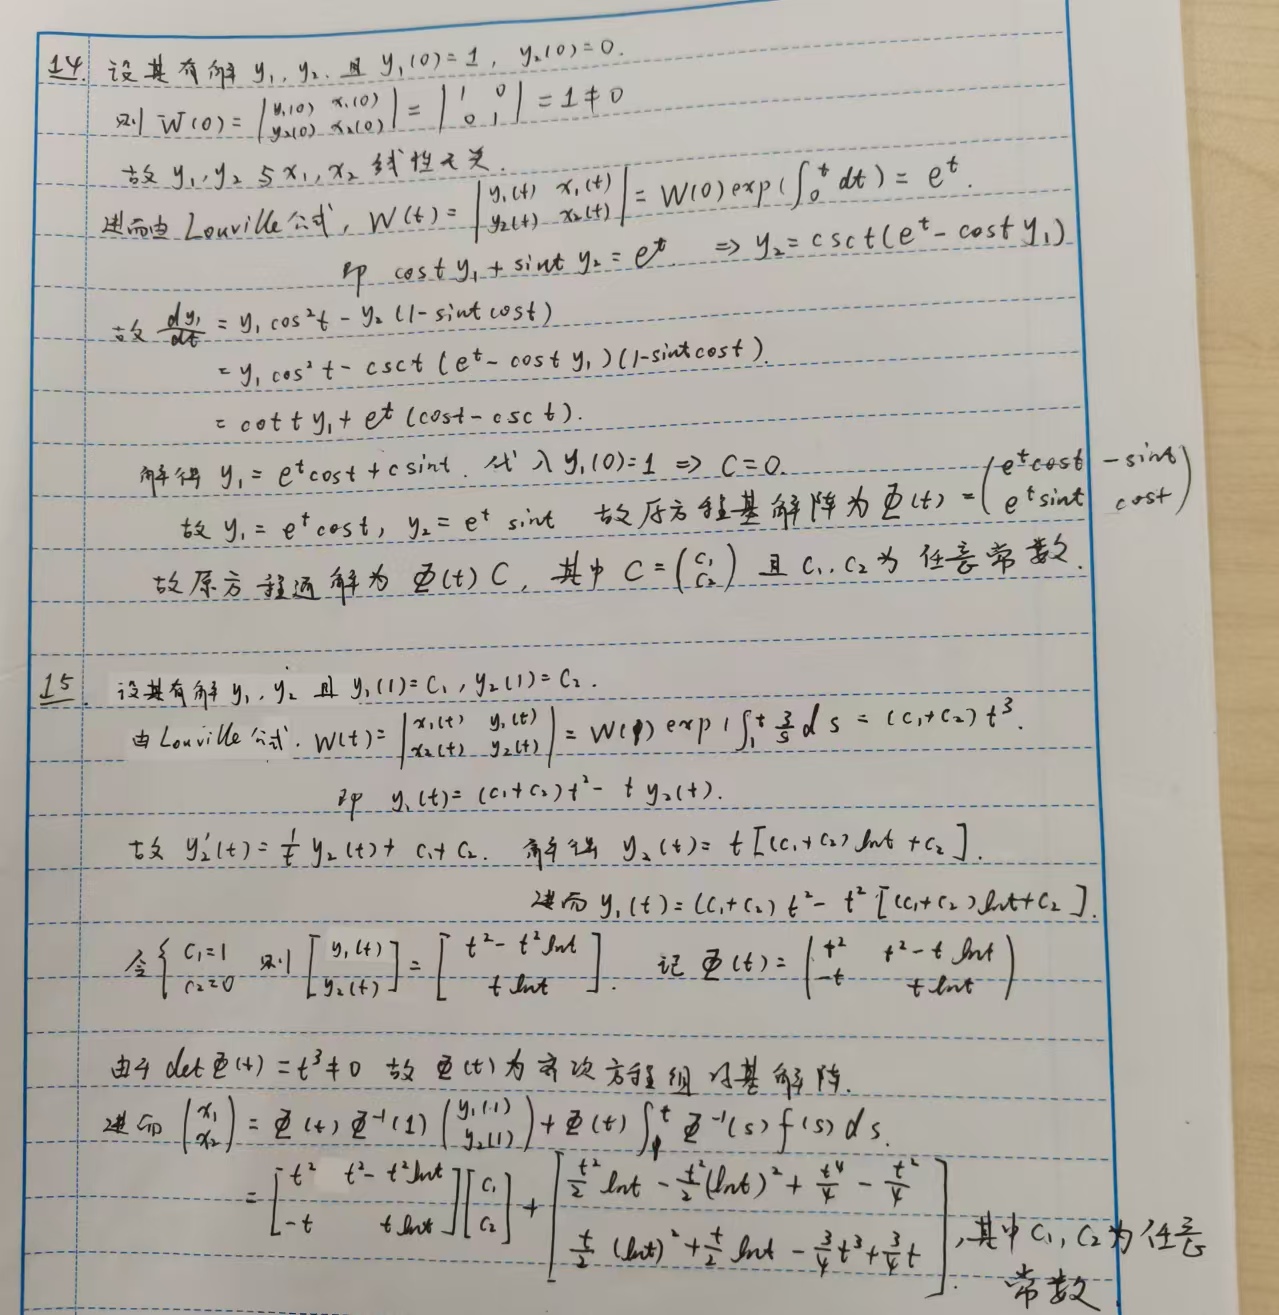 14. 设其有解 y₁, y₂. 且 y₁(0)=1, y₂(0)=0.
则 W(0) = |y₁(0) x₁(0); y₂(0) x₂(0)| = |1 0; 0 1| = 1 ≠ 0
故 y₁, y₂ 与 x₁, x₂ 线性无关.
进而由 Louville 公式, W(t) = |y₁(t) x₁(t); y₂(t) x₂(t)| = W(0) exp(∫₀ᵗ dt) = eᵗ.
即 cost y₁ + sint y₂ = eᵗ. ⇒ y₂ = csct(eᵗ - cost y₁)
故 dy₁/dt = y₁cos²t - y₂(1-sintcost)
= y₁cos²t - csct(eᵗ - cost y₁)(1-sintcost).
= cott y₁ + eᵗ(cost - csct).
解得 y₁ = eᵗcost + c sint. 代入 y₁(0)=1 ⇒ C=0.
故 y₁ = eᵗcost, y₂ = eᵗ sint 故原方程基解阵为 Φ(t) = (eᵗcost -sint; eᵗsint cost)
故原方程通解为 Φ(t)C, 其中 C = (c₁; c₂) 且 c₁, c₂ 为任意常数.
15. 设其有解 y₁, y₂ 且 y₁(1)=C₁, y₂(1)=C₂.
由 Louville 公式. W(t) = |x₁(t) y₁(t); x₂(t) y₂(t)| = W(1) exp(∫₁ᵗ 3/s ds = (C₁+C₂)t³.
即 y₁(t) = (C₁+C₂)t² - t y₂(t).
故 y₂'(t) = 1/t y₂(t) + C₁+C₂. 解得 y₂(t) = t[(C₁+C₂)lnt + C₂].
进而 y₁(t) = (C₁+C₂)t² - t²[(C₁+C₂)lnt+C₂].
令 {C₁=1; C₂=0 则 [y₁(t); y₂(t)] = [t²-t²lnt; tlnt]. 记 Φ(t) = (t² t²-tlnt; -t tlnt)
由于 detΦ(t) = t³ ≠ 0 故 Φ(t) 为齐次方程组的基解阵.
进而 (x₁; x₂) = Φ(t)Φ⁻¹(1)(y₁(1); y₂(1)) + Φ(t)∫₁ᵗ Φ⁻¹(s)f(s)ds.
= [t² t²-t²lnt; -t tlnt][C₁; C₂] + [t²/2 lnt - t²/2(lnt)² + t⁴/4 - t²/4; t/2 (lnt)² + t/2 lnt - 3/4t³ + 3/4t]., 其中 C₁, C₂ 为任意
常数.